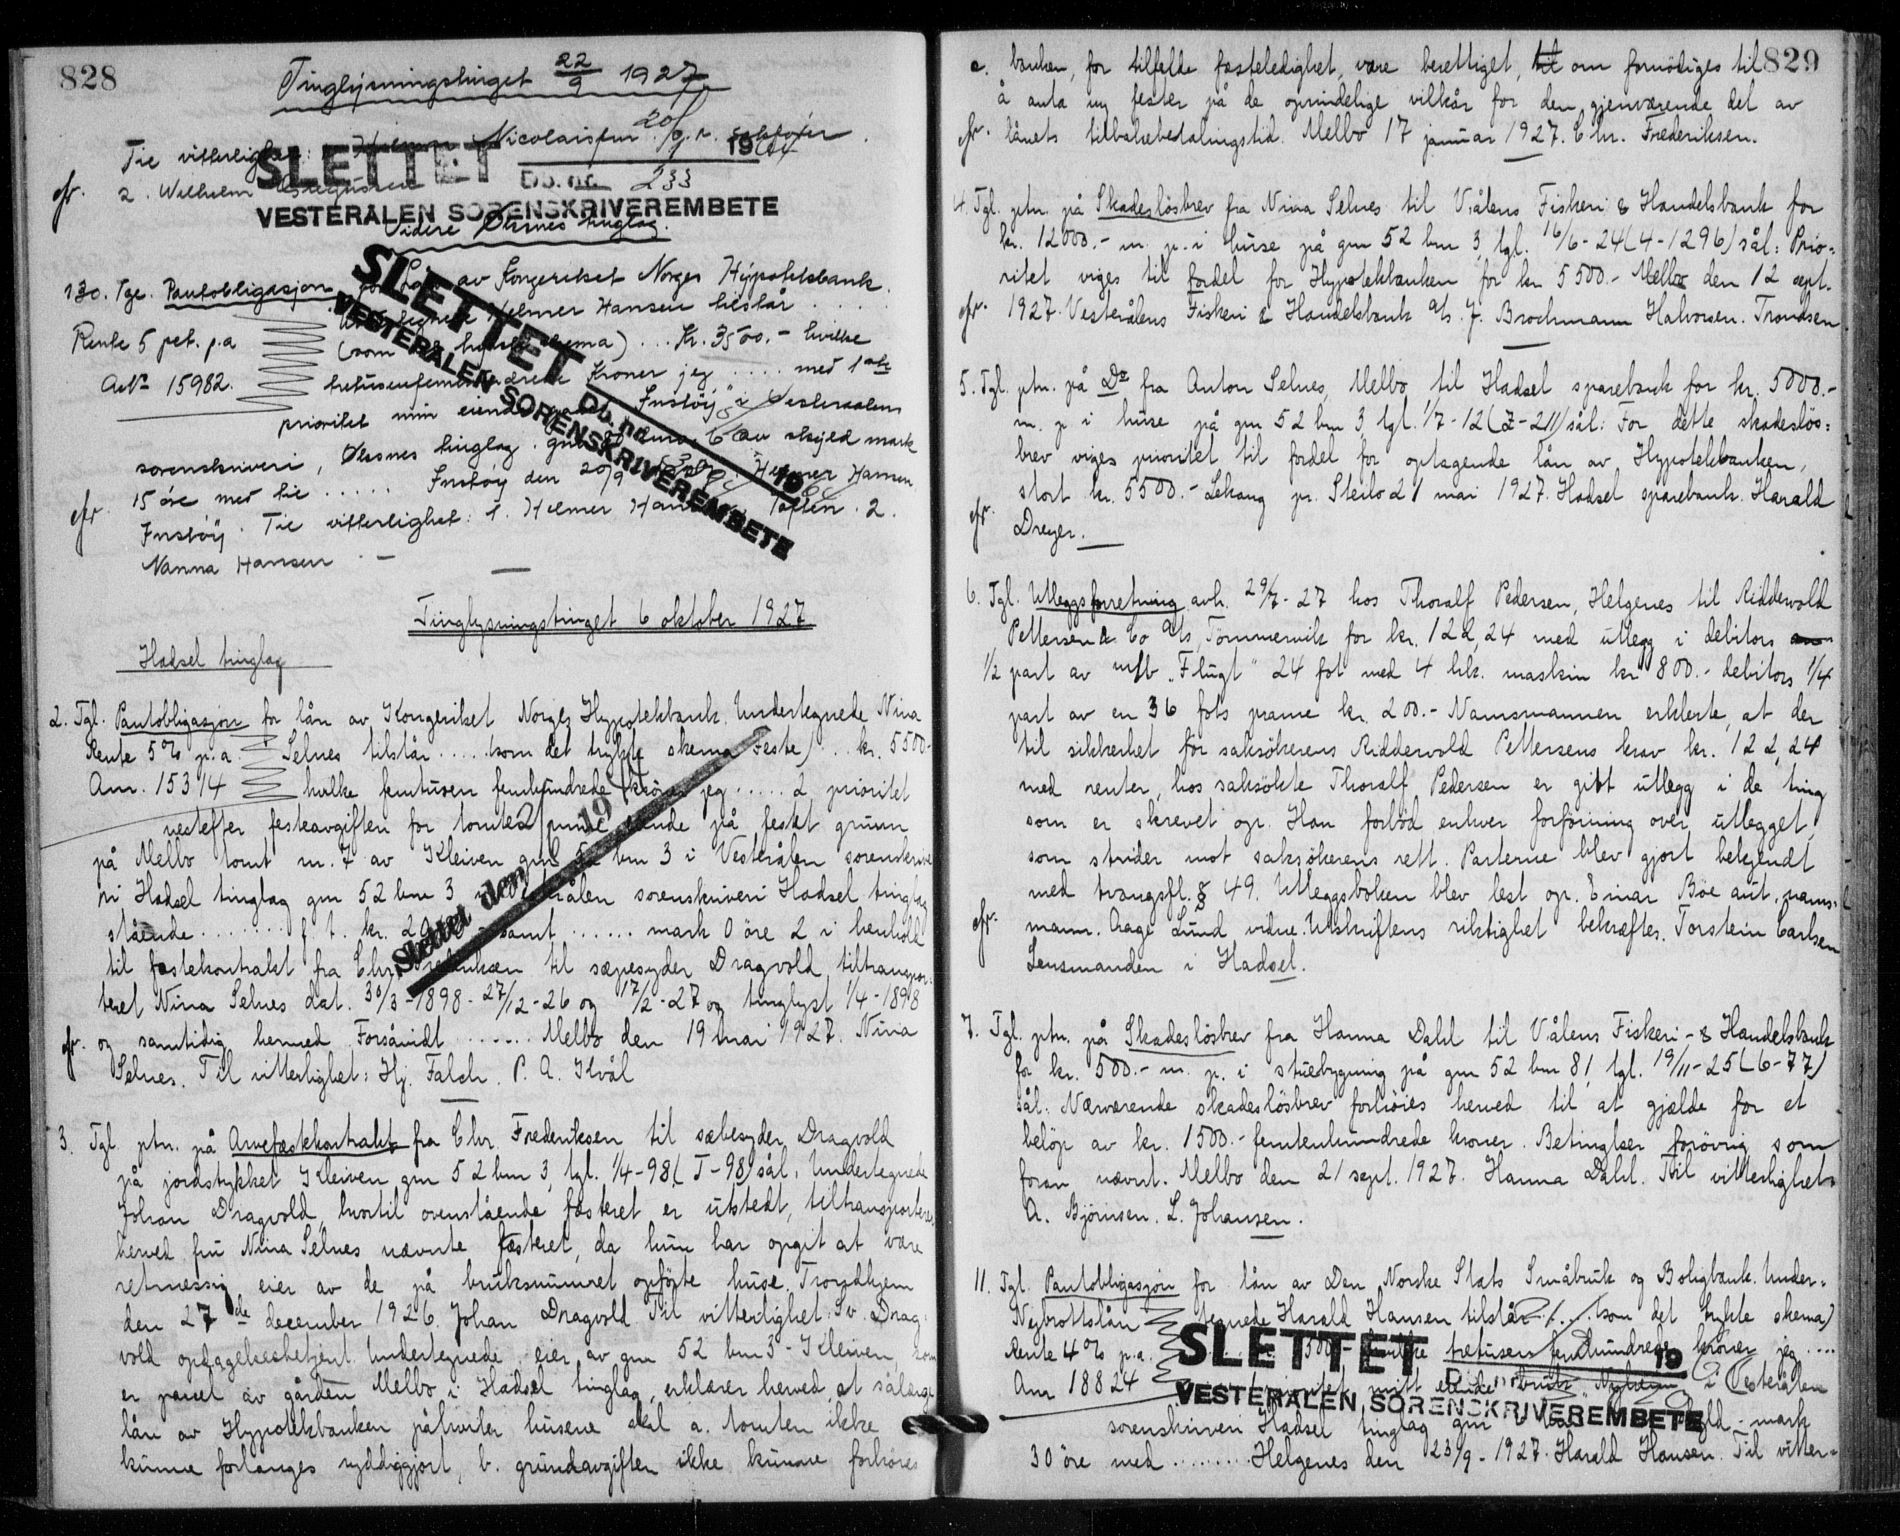 828
Tinglysningstinget 22/9 1927.
Til vitterlighet: Hilmar Nicolaisen
2. Wilhelm
SLETTET 20/9 19
Db. nr. 233
VESTERÅLEN SORENSKRIVEREMBETE
Videre Øksnes tinglag.
130. Tgl. Pantobligasjon for Lån av Kongeriket Norges Hypotekbank.
Helmer Hansen tilstår ....
Rente 5 pct. p.a (som skema) ... Kr. 3500.- hvilke
A№ 15982. kroner jeg .... med 1ste
prioritet min eiendom i Vesteraalens
sorenskriveri, Øksnes tinglag. gnr. bnr. 6 av skyld mark
15 øre med ..... den 20/9 Helmer Hansen
Til vitterlighet: 1. Helmer 2.
Nanna Hansen. —
SLETTET
VESTERÅLEN SORENSKRIVEREMBETE
Db. nr. 19
Tinglysningstinget 6 oktober 1927
Hadsel tinglag
2. Tgl. Pantobligasjon for lån av Kongeriket Norges Hypotekbank. Undertegnede Nina
Rente 5% p.a. Selnes tilstår ..... (som det trykte skema Feste) .. kr. 5500.-
Ann. 15314 hvilke femtusen femhundrede kroner jeg ..... 2 prioritet
nestefter festeavgiften for tomten mine på festet grunn
på Melbo tomt nr. 7 av Kleiven gnr 52 bnr 3 i Vesterålen sorenskrive
ri Hadsel tinglag gnr 52 bnr 3 i Vesterålen sorenskriveri Hadsel tinglag
stående ........ f. t. kr. samt ...... mark 0 øre 2 i henhold
til festekontrakt fra Chr. Frederiksen til sæpesyder Dragvold, tiltranspor-
teret Nina Selnes dat. 30/3-1898 - 27/12-26 og 17/2-27 og tinglyst 1/4-1898
og samtidig hermed. Forsåvidt ...... Melbo den 19 mai 1927. Nina
Selnes. Til vitterlighet: Hj. Falch. P. A. Kvål
Slettet den 19
3. Tgl. ptn. på Arvefæstekontrakt fra Chr. Frederiksen til sæbesyder Dragvold
på jordstykket Kleiven gnr 52 bnr 3, tgl. 1/4-98 (T-98) sål: Undertegnede
Johan Dragvold, hvortil ovenstående fæsteret er utstedt, tiltransporterer
herved fru Nina Selnes nævnte fæsteret, da hun har opgit at være
retmessig eier av de på bruksnumret opførte huse. Trondhjem
den 27de december 1926. Johan Dragvold. Til vitterlighet: Sv. Drag-
vold opsyggelsesbetjent. Undertegnede eier av gnr 52 bnr 3 - Kleiven som
er parsel av gården Melbo i Hadsel tinglag, erklærer herved at sålænge
lån av Hypotekbanken påhviler husene skal a. tomten ikke
kunne forlanges ryddiggjort, b. grundavgiften ikke kunne forhøies
829
c. banken, for tilfelde festeledighet, være berettiget, til om fornødiges til
å anta ny fester på de oprindelige vilkår for den gjenværende del av
lånets tilbakebetalingstid. Melbo 17 januar 1927. Chr. Frederiksen.
4. Tgl. ptn. på Skadesløsbrev fra Nina Selnes til V.ålens Fiskeri & Handelsbank for
kr. 12000.- m. p. i huse på gnr 52 bnr 3, tgl. 16/6-24 (4-1296) sål: Prio-
ritet viges til fordel for Hypotekbanken for kr 5500.- Melbo den 12 sept.
1927. Vesterålens Fiskeri & Handelsbank a/s. J. Brochmann Halvorsen. Trondsen
5. Tgl. ptn. på Do fra Anton Selnes, Melbo, til Hadsel sparebank for kr. 5000.-
m. p. i huse på gnr 52 bnr 3 tgl. 1/7-12 (Z-211) sål: For dette skadesløs-
brev viges prioritet til fordel for optagende lån av Hypotekbanken,
stort kr. 5500.- Lekang pr. Steilo 21 mai 1927. Hadsel sparebank. Harald
Dreyer.
6. Tgl. Utleggsforretning avh. 29/7-27 hos Thoralf Pedersen, Helgenes til Riddervold
Pettersen & Co a/s, Tømmervik for kr. 122,24 med utlegg i debitors
1/2 part av m/b "Flugt" 24 fot med 4 hk. maskin kr 800.- debitors 1/4
part av en 36 fots prame kr. 200.- Namsmannen erklerte, at der
til sikkerhet for saksøkerens Riddervold Pettersens krav kr. 122,24
med renter, hos saksøkte Thoralf Pedersen er gitt utlegg i de ting
som er skrevet op. Han forbød enhver forføining over utlegget,
som strider mot saksøkerens rett. Parterne blev gjort bekjendt
med tvangsfl. § 49. Utleggsboken blev lest op. Einar Bøe aut. nams-
mann. Aage Lund vidne. Utskriftens riktighet bekræftes. Torstein Carlsen
Lensmanden i Hadsel.
7. Tgl. ptn. på Skadesløsbrev fra Hanna Dahl til V.ålens Fiskeri- & Handelsbank
for kr. 500.- m. p. i stuebygning på gnr 52 bnr 81, tgl. 19/11-25 (6-77)
sål: Nærværende skadesløsbrev forhøies herved til at gjælde for et
beløp av kr. 1500.- femtenhundrede kroner. Betingelser forøvrig som
foran nævnt. Melbo den 21 sept. 1927. Hanna Dahl. Til vitterlighet:
A. Bjørnsen. L. Johansen.
11. Tgl. Pantobligasjon for lån av Den Norske Stats Småbruk og Boligbank. Under-
Nybrottslån tegnede Harald Hansen tilstår ..... (som det trykte skema)
Rente 4% p.a. 3500,- hvilke tretusen femhundrede kroner jeg ....
Ann 18824 prioritet mitt eiende bruk "Nyheim" i Vesterålen
sorenskriveri Hadsel tinglag gnr skyld - mark
30 øre med ......... Helgenes den 23/9-1927. Harald Hansen. Til vitter-
SLETTET 19
VESTERÅLEN SORENSKRIVEREMBETE